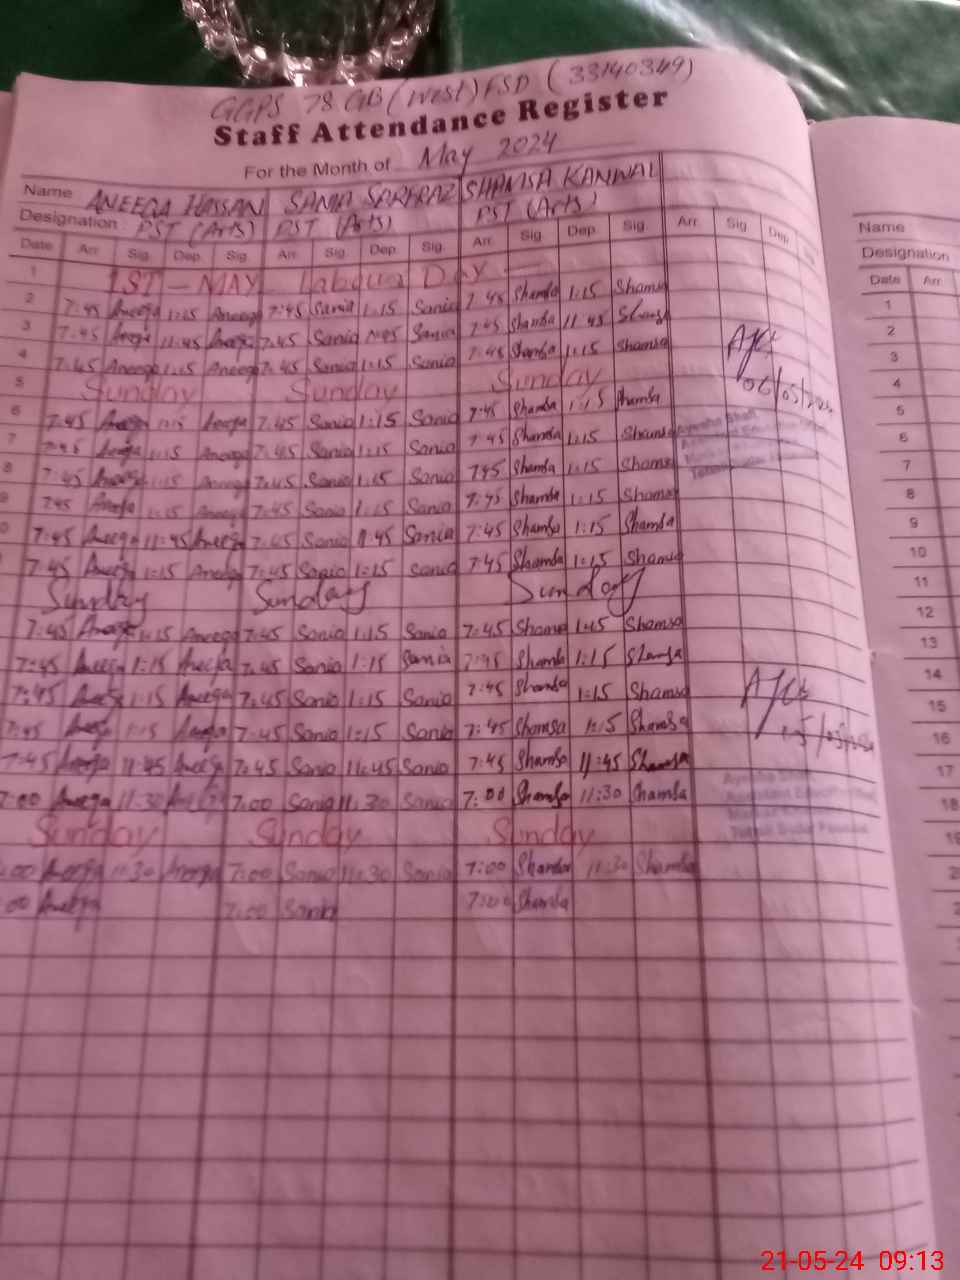 GGPS 78 GB (West) FSD (33140349)
Staff Attendance Register
For the Month of May 2024
Name ANEEQA HASSAN SANIA SARFRAZ SHAMSA KANWAL
Designation PST (Arts) PST (Arts) PST (Arts)
Date Arr. Sig. Dep. Sig. Arr. Sig. Dep. Sig. Arr. Sig. Dep. Sig. Arr. Sig. Dep.
1 1ST - MAY Labour Day
2 7:45 Aneeqa 1:15 Aneeqa 7:45 Sania 1:15 Sania 7:45 Shamsa 1:15 Shamsa
3 7:45 Aneeqa 11:45 Aneeqa 7:45 Sania Sania 7:45 Shamsa 11:45 Shamsa
4 7:45 Aneeqa 1:15 Aneeqa 7:45 Sania 1:15 Sania 7:45 Shamsa 1:15 Shamsa
5 Sunday Sunday Sunday
6 7:45 Aneeqa 1:15 Aneeqa 7:45 Sania 1:15 Sania 7:45 Shamsa 1:15 Shamsa
7 7:45 Aneeqa 1:15 Aneeqa 7:45 Sania 1:15 Sania 7:45 Shamsa 1:15 Shamsa
8 7:45 Aneeqa 1:15 Aneeqa 7:45 Sania 1:15 Sania 7:45 Shamsa 1:15 Shamsa
9 7:45 Aneeqa 1:15 Aneeqa 7:45 Sania 1:15 Sania 7:45 Shamsa 1:15 Shamsa
0 7:45 Aneeqa 11:45 Aneeqa 7:45 Sania Sania 7:45 Shamsa 1:15 Shamsa
7:45 Aneeqa 1:15 Aneeqa 7:45 Sania 1:15 Sania 7:45 Shamsa 1:15 Shamsa
Sunday Sunday Sunday
7:45 Aneeqa 1:15 Aneeqa 7:45 Sania 1:15 Sania 7:45 Shamsa 1:15 Shamsa
7:45 Aneeqa 1:15 Aneeqa 7:45 Sania 1:15 Sania 7:45 Shamsa 1:15 Shamsa
7:45 Aneeqa 1:15 Aneeqa 7:45 Sania 1:15 Sania 7:45 Shamsa 1:15 Shamsa
7:45 Aneeqa 1:15 Aneeqa 7:45 Sania 1:15 Sania 7:45 Shamsa 1:15 Shamsa
7:45 Aneeqa 11:45 Aneeqa 7:45 Sania 11:45 Sania 7:45 Shamsa 11:45 Shamsa
7:00 Aneeqa 11:30 Aneeqa 7:00 Sania 11:30 Sania 7:00 Shamsa 11:30 Shamsa
Sunday Sunday Sunday
:00 Aneeqa 11:30 Aneeqa 7:00 Sania 11:30 Sania 7:00 Shamsa 11:30 Shamsa
:00 Aneeqa 7:00 Sania 7:00 Shamsa
06/05/
Ayesha
Ayesha
Name
Designation
Date Arr.
1
2
3
4
5
6
7
8
9
10
11
12
13
14
15
16
17
18
19
21-05-24 09:13